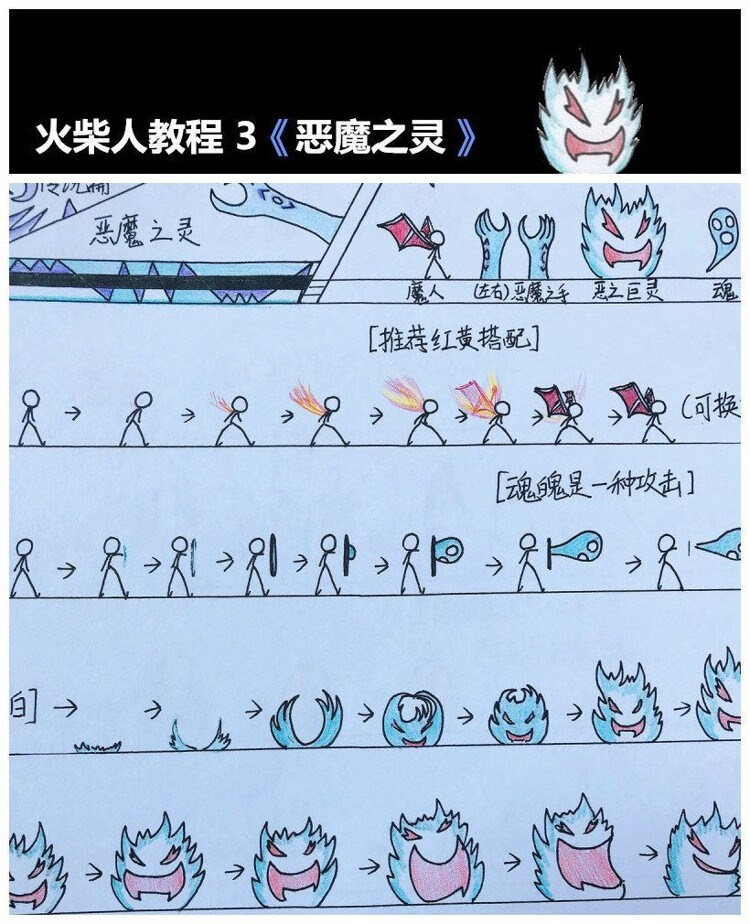 火柴人教程 3《恶魔之灵》
恶魔之灵
魔人
(左右)恶魔之手
恶之巨灵
魂
[推荐红黄搭配]
(可换
[魂魄是一种攻击]
白]